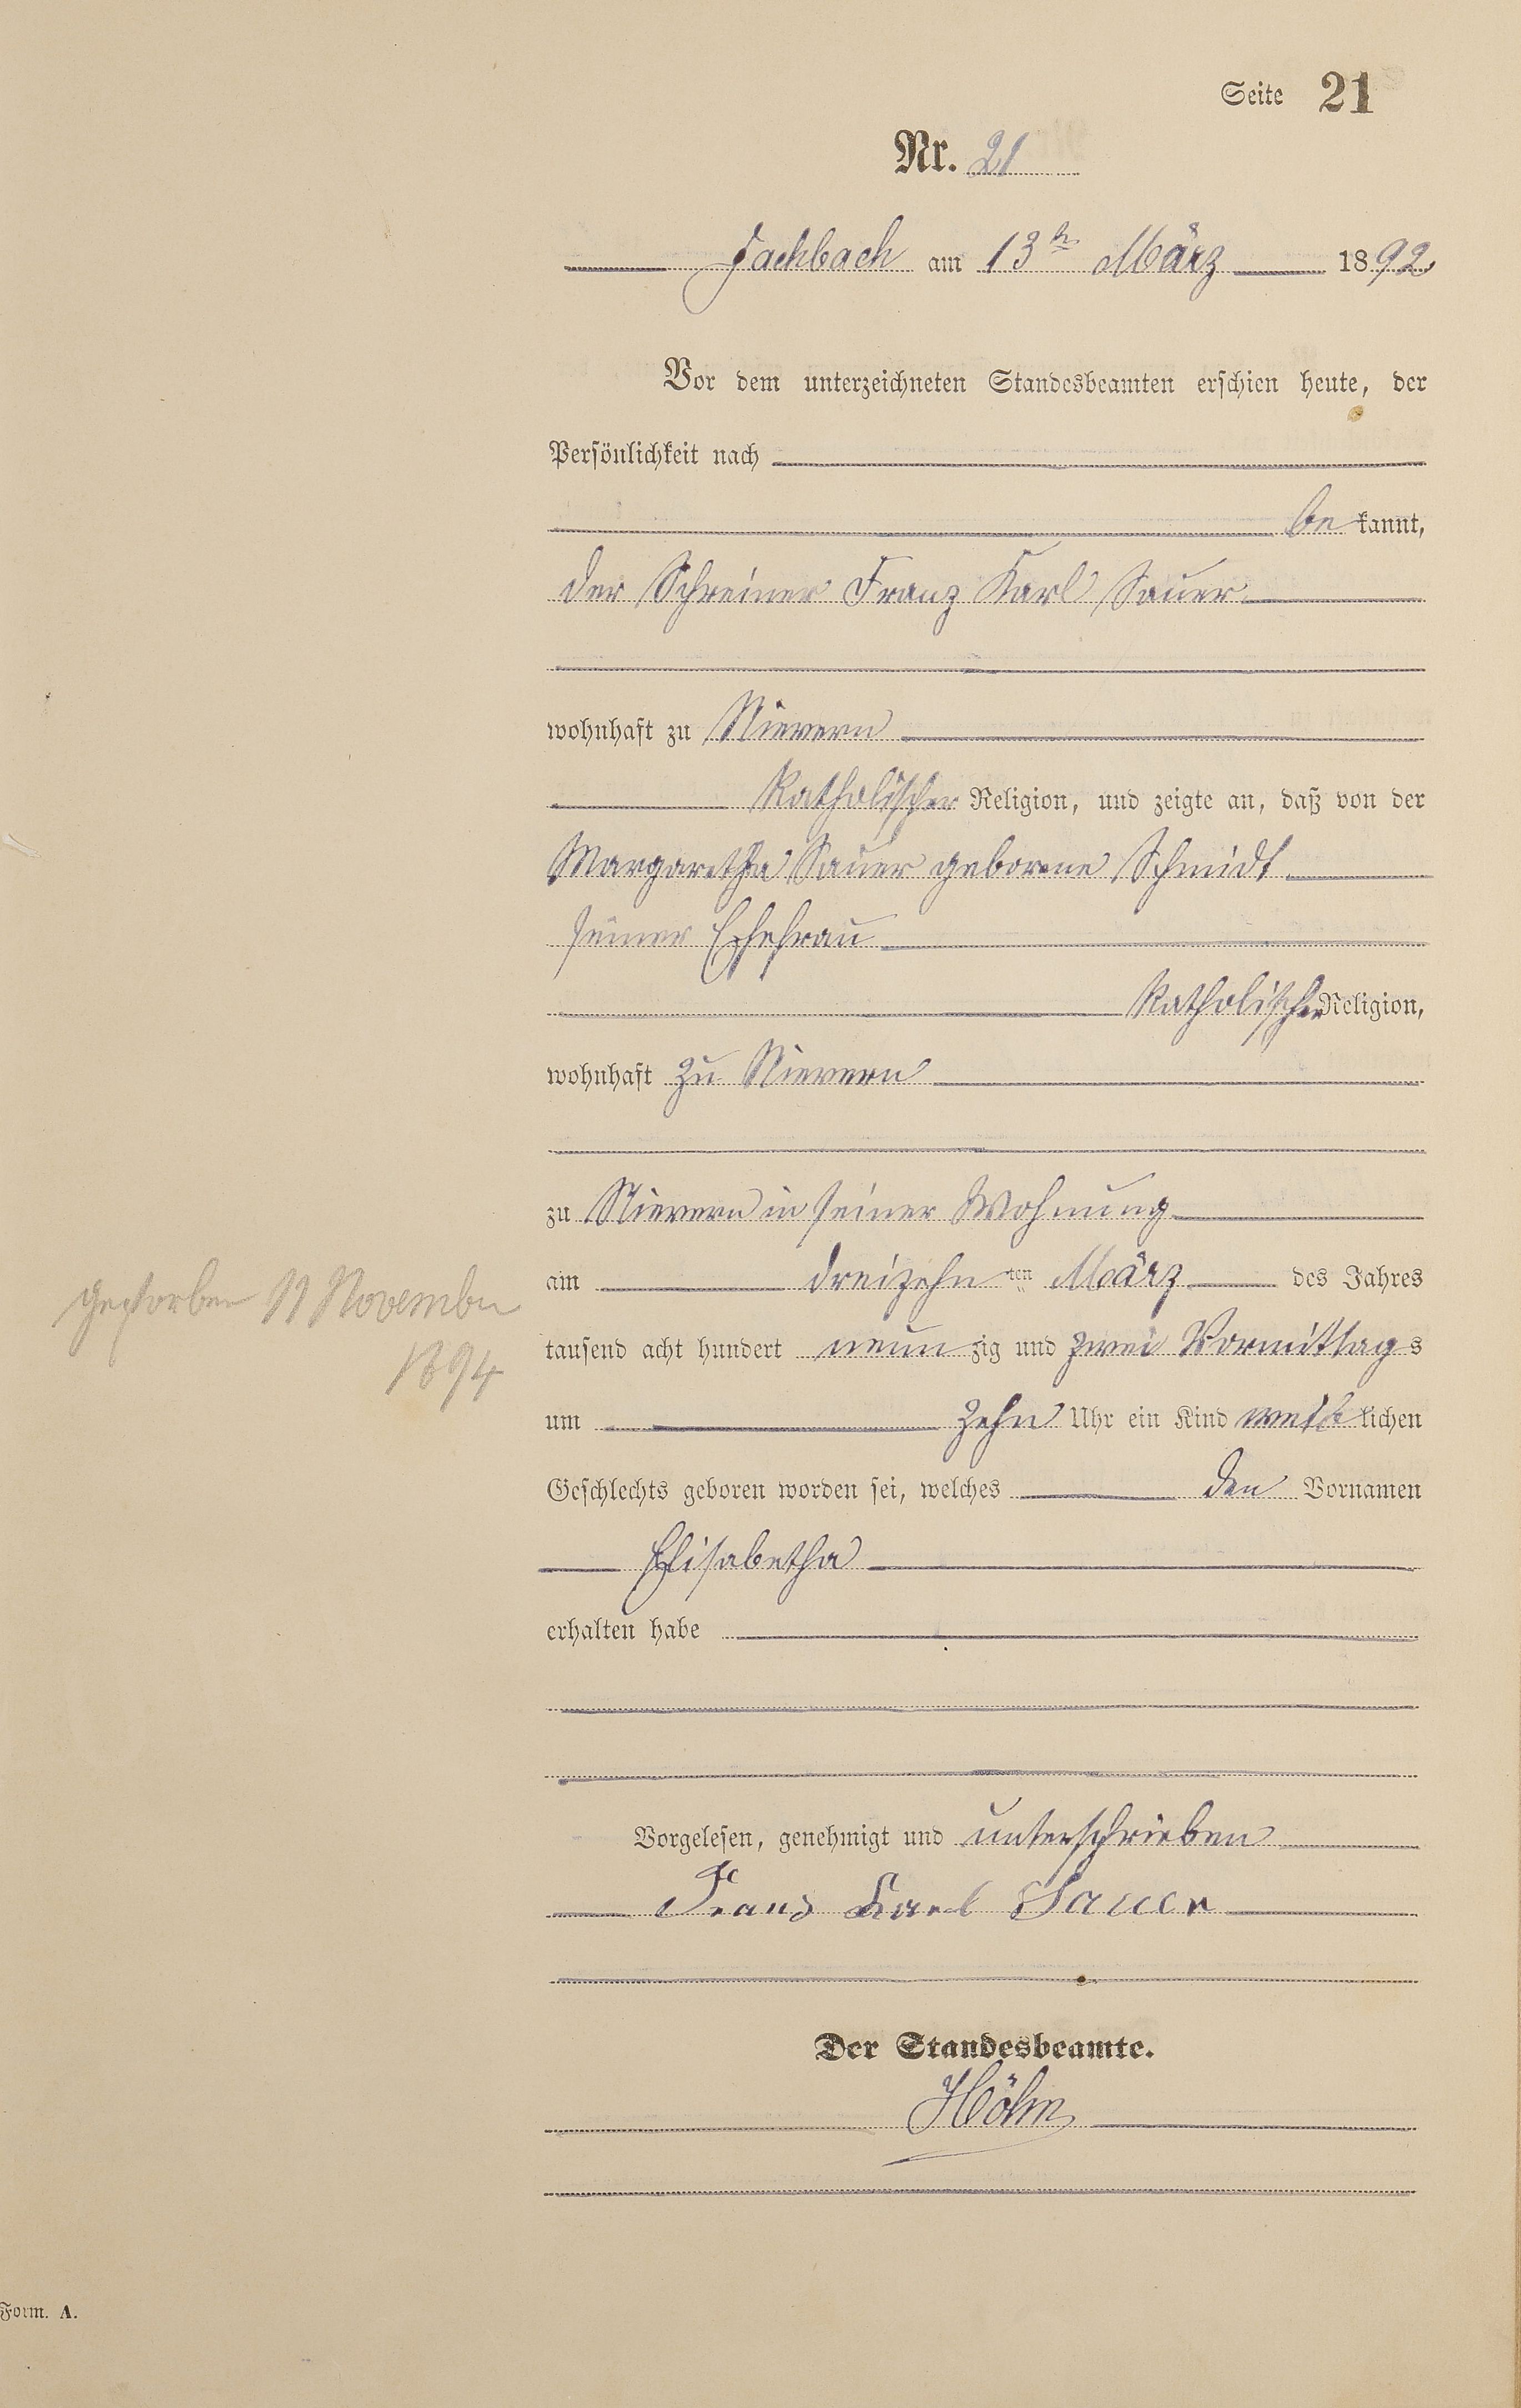 Seite 21
Nr. 21
Fachbach am 13ten März 1892
Vor dem unterzeichneten Standesbeamten erschien heute, der
Persönlichkeit nach
bekannt,
der Schreiner Franz Karl Sauer
wohnhaft zu Nievern
katholischer Religion, und zeigte an, daß von der
Margaretha Sauer geborene Schmidt
seiner Ehefrau
katholischer Religion,
wohnhaft zu Nievern
zu Nievern in seiner Wohnung
am dreizehnten März des Jahres
gestorben 11 November
tausend acht hundert neunzig und zwei Vormittags
1894
um zehn Uhr ein Kind weiblichen
Geschlechts geboren worden sei, welches den Vornamen
Elisabetha
erhalten habe
Vorgelesen, genehmigt und unterschrieben
Franz Karl Sauer
Der Standesbeamte.
Höhn
Form. A.